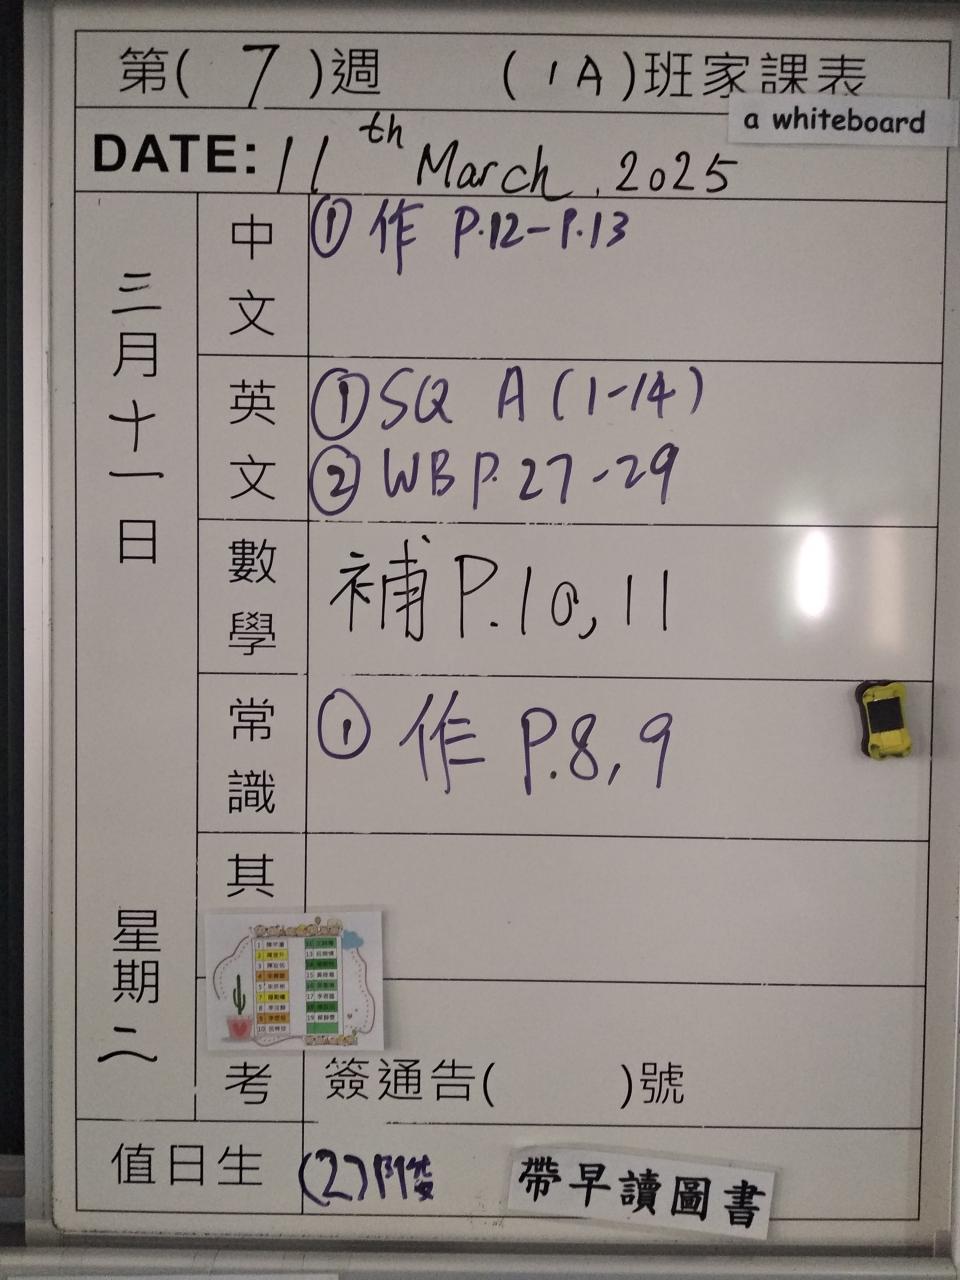 第( 7 )週 ( 1A )班家課表
a whiteboard
DATE: 11th March, 2025
三月十一日
星期二
中文
① 作 P.12-P.13
英文
① SQ A (1-14)
② WB P. 27-29
數學
補 P.10, 11
常識
① 作 P.8, 9
其
考
簽通告( )號
值日生
(2)
帶早讀圖書